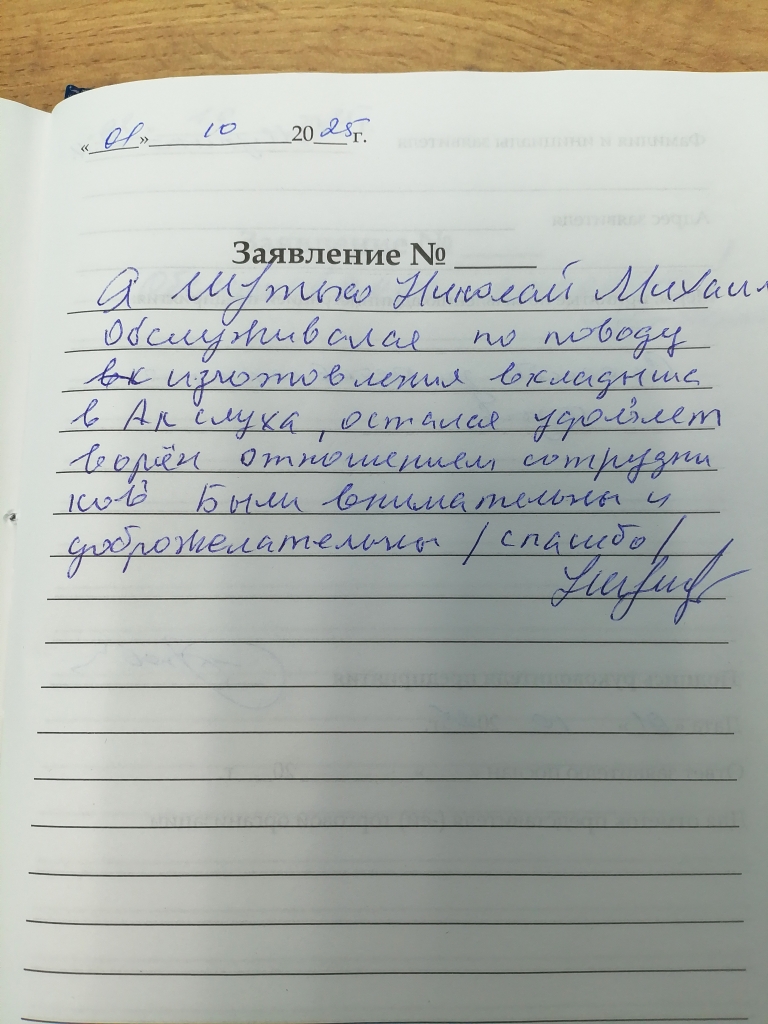 «01» 10 2025г.
Заявление № ____
Я Шутько Николай Михаил
Обслуживался по поводу
изготовления вкладыша
в Ак слуха, остался удовлет
ворён отношением сотрудни
ков Были внимательны и
доброжелательны /спасибо/